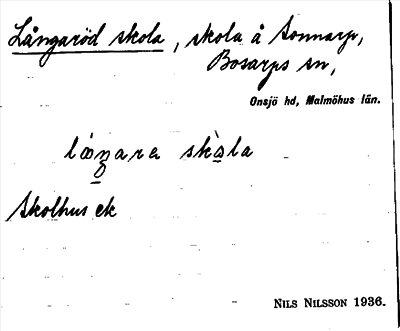 Långaröd skola, skola å Sonnarp,
Bosarps sn,
Onsjö hd, Malmöhus län.
skola
Skolhus ek
NILS NILSSON 1936.